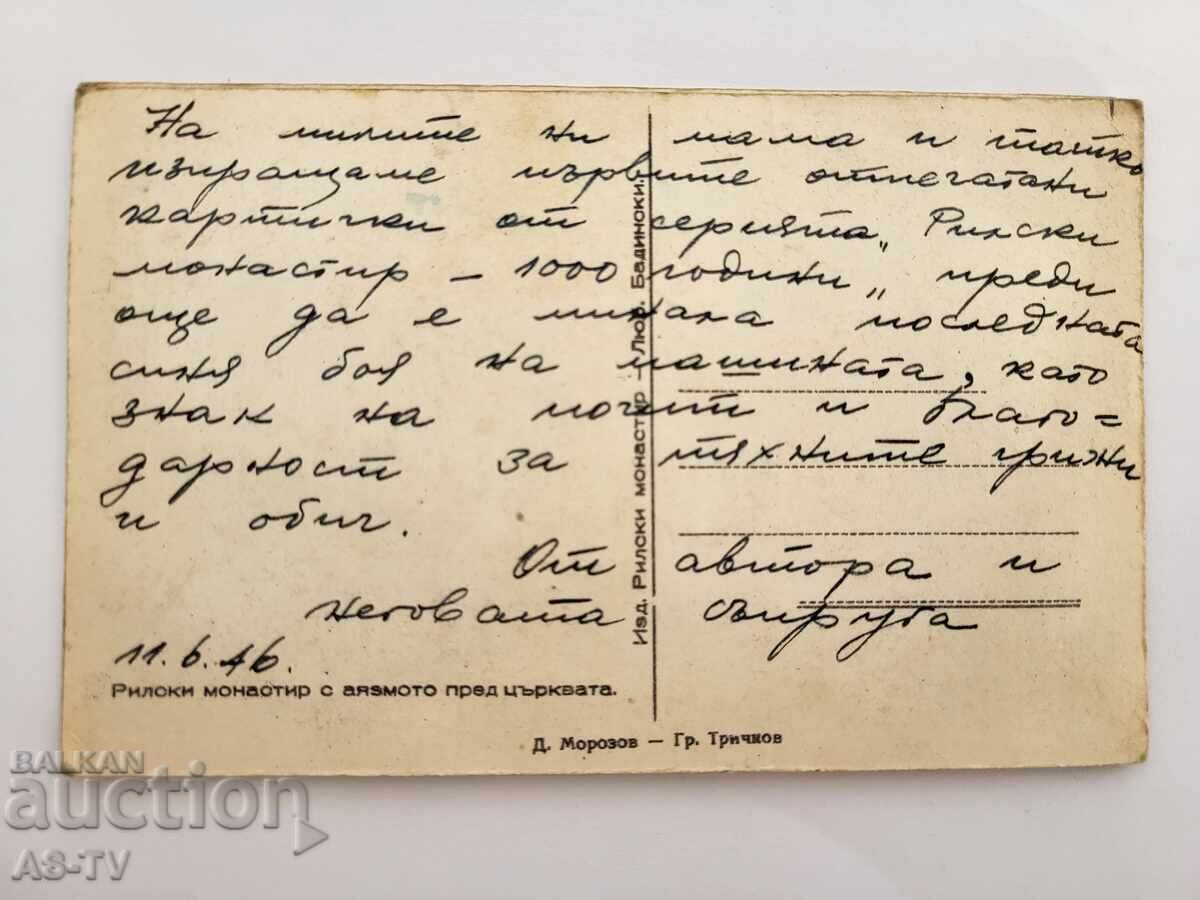 На милите ни мама и татко
изпращаме първите отпечатани
картички от серията „Рилски
монастир – 1000 години„ преди
още да е минала последната
синя боя на машината, като
знак на почит и благо=
дарност за тяхните грижи
и обич.
От автора и
неговата съпруга
11.6.46.
Рилски монастир с аязмото пред църквата.
Изд. Рилски монастир – Люб. Бадински.
Д. Морозов — Гр. Тричков
BALKAN
auction
AS-TV